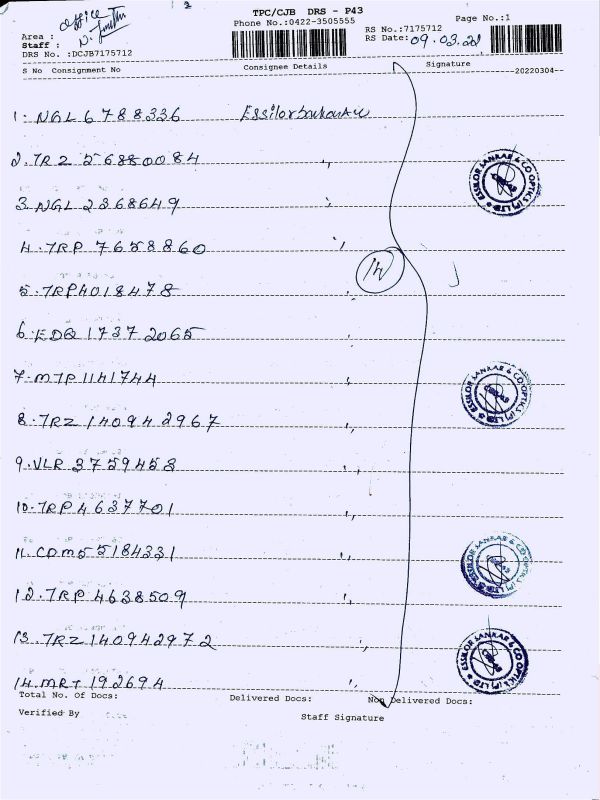 2
TPC/CJB DRS - P43
Phone No.:0422-3505555
Page No.:1
office
Area :
Staff :
RS No.:7175712
RS Date: 09.03.22
DRS No. :DCJB7175712
S No Consignment No Consignee Details Signature
20220304
1. NGL 6788336 Essilor
2. TRZ 56880084 ,,
3. NGL 2368649 ,,
4. TRP 7658860 ,,
5. TRP 4018478 ,,
6. EDQ 17372065
7. MTP 1141744 ,,
8. TRZ 140942967 ,,
9. VLR 3759458 ,,
10. TRP 4637701 ,,
11. CDM 55184331 ,,
12. TRP 4638509 ,,
13. TRZ 140942972 ,,
14. MRT 192694 ,,
14
ESSILOR SANKAR & CO-OPTICS (P) LTD
ESSILOR SANKAR & CO-OPTICS (P) LTD
ESSILOR SANKAR & CO-OPTICS (P) LTD
ESSILOR SANKAR & CO-OPTICS (P) LTD
Total No. Of Docs: Delivered Docs: Non Delivered Docs:
Verified By Staff Signature